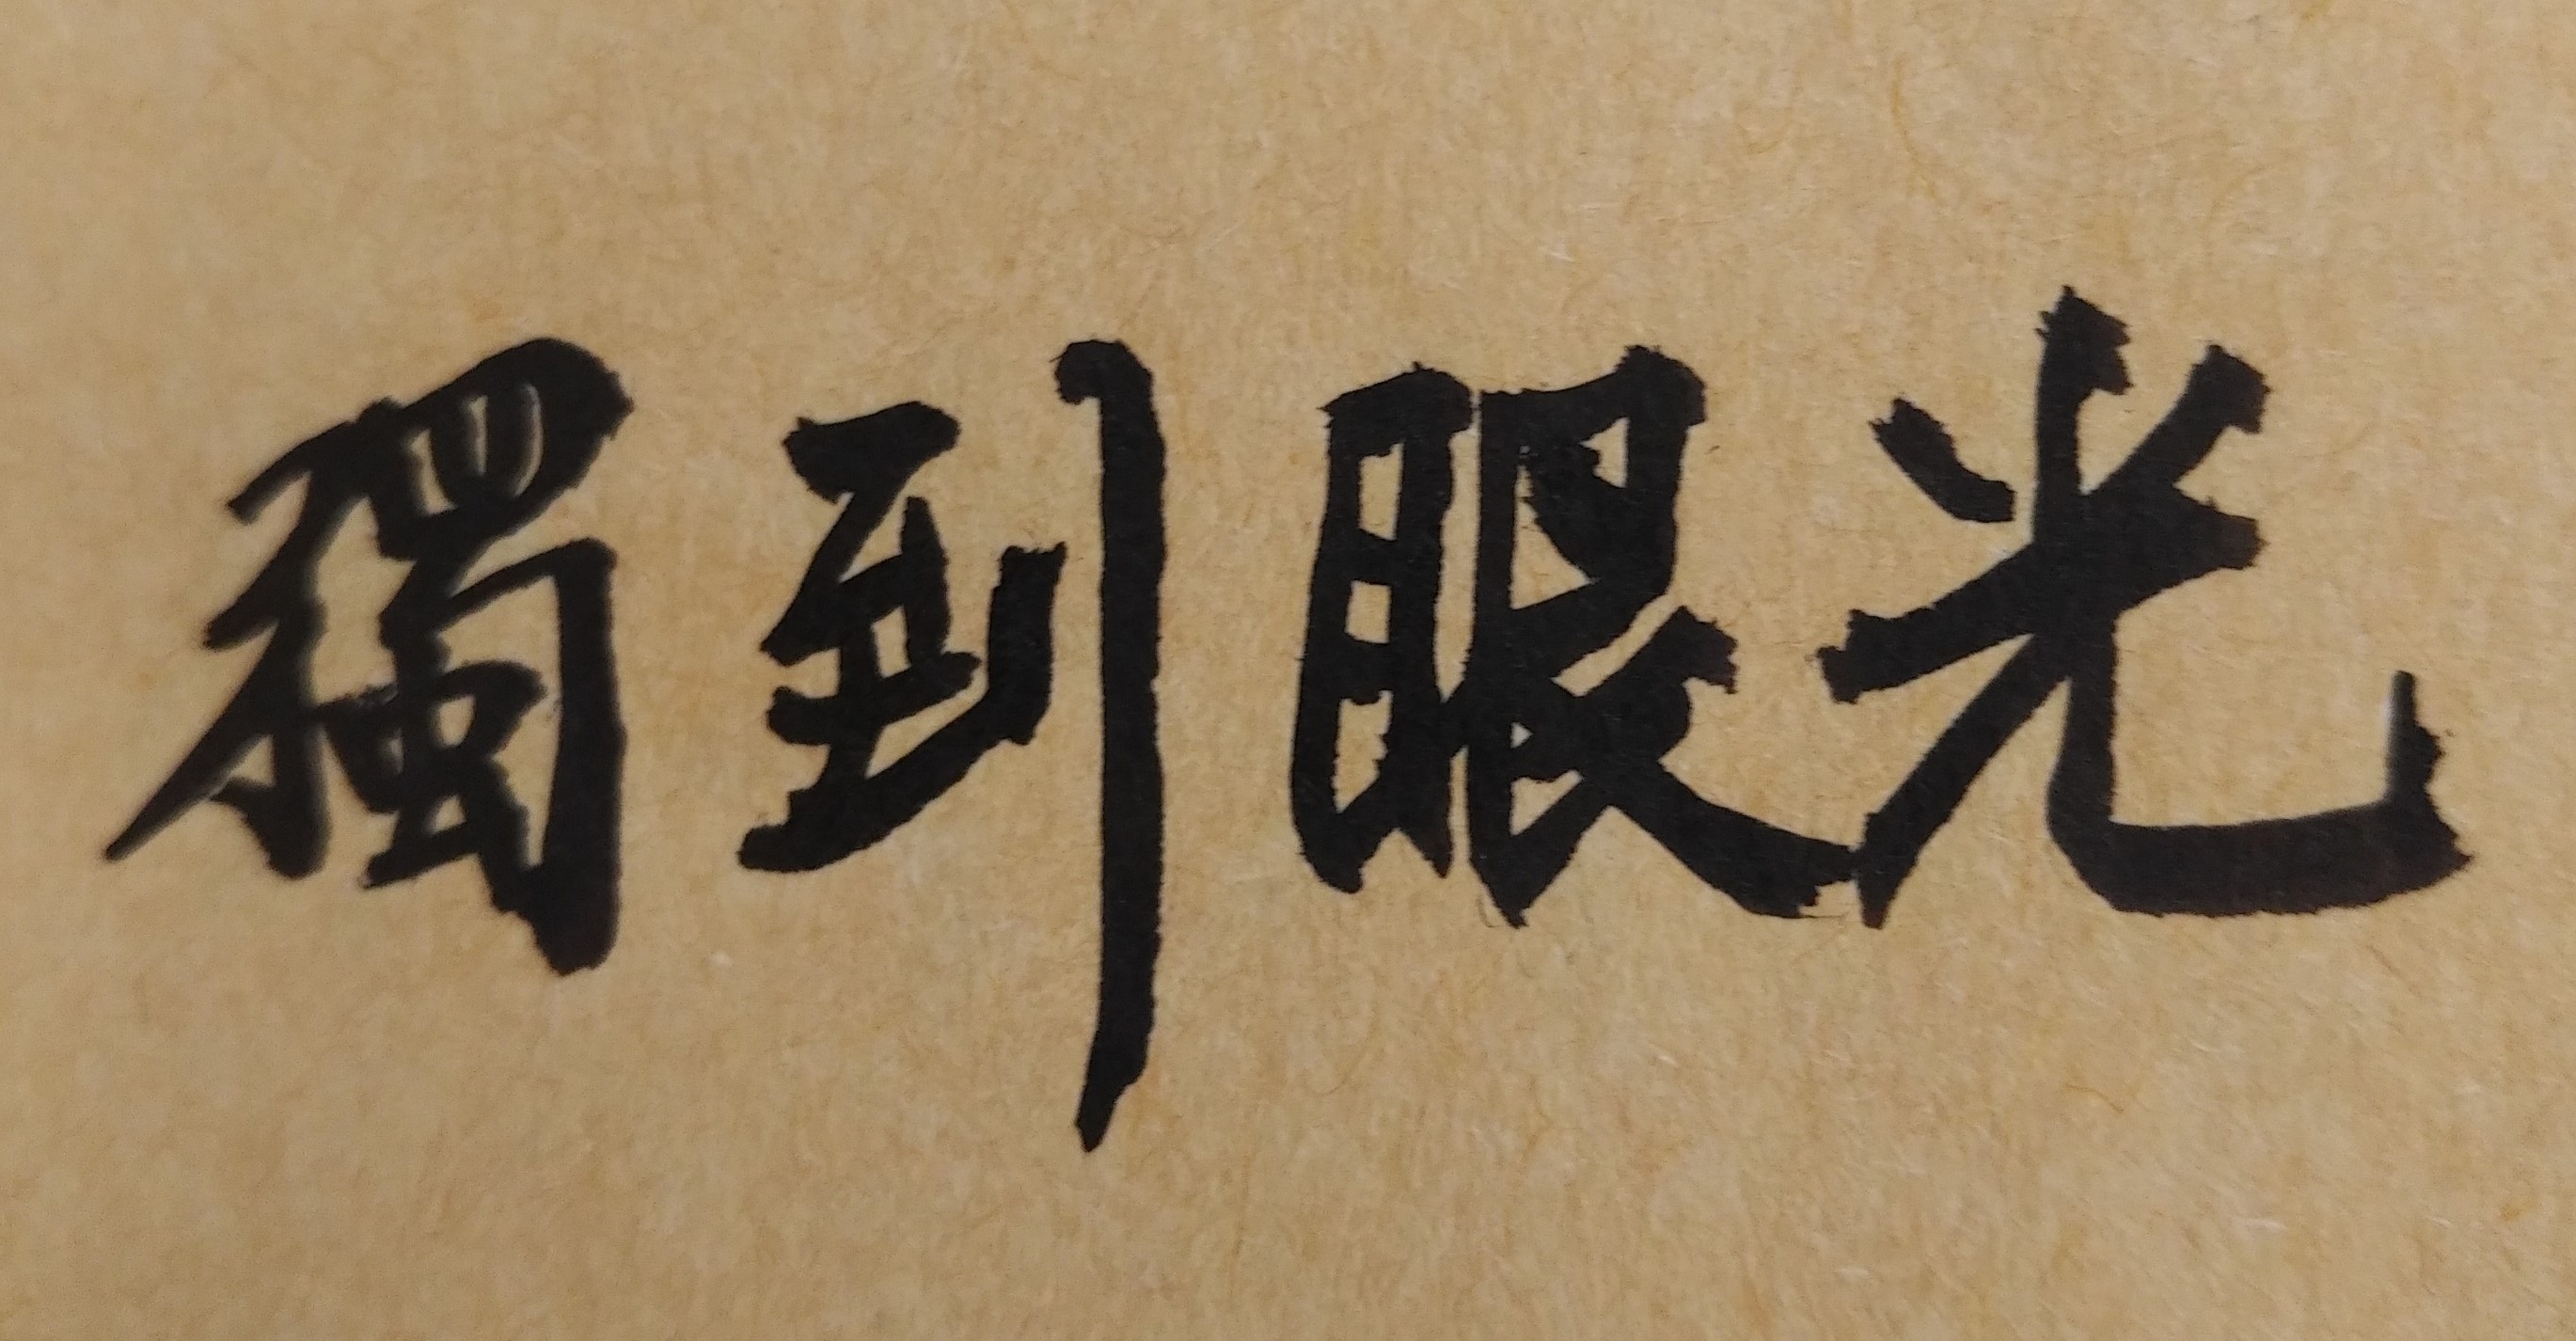 獨到眼光